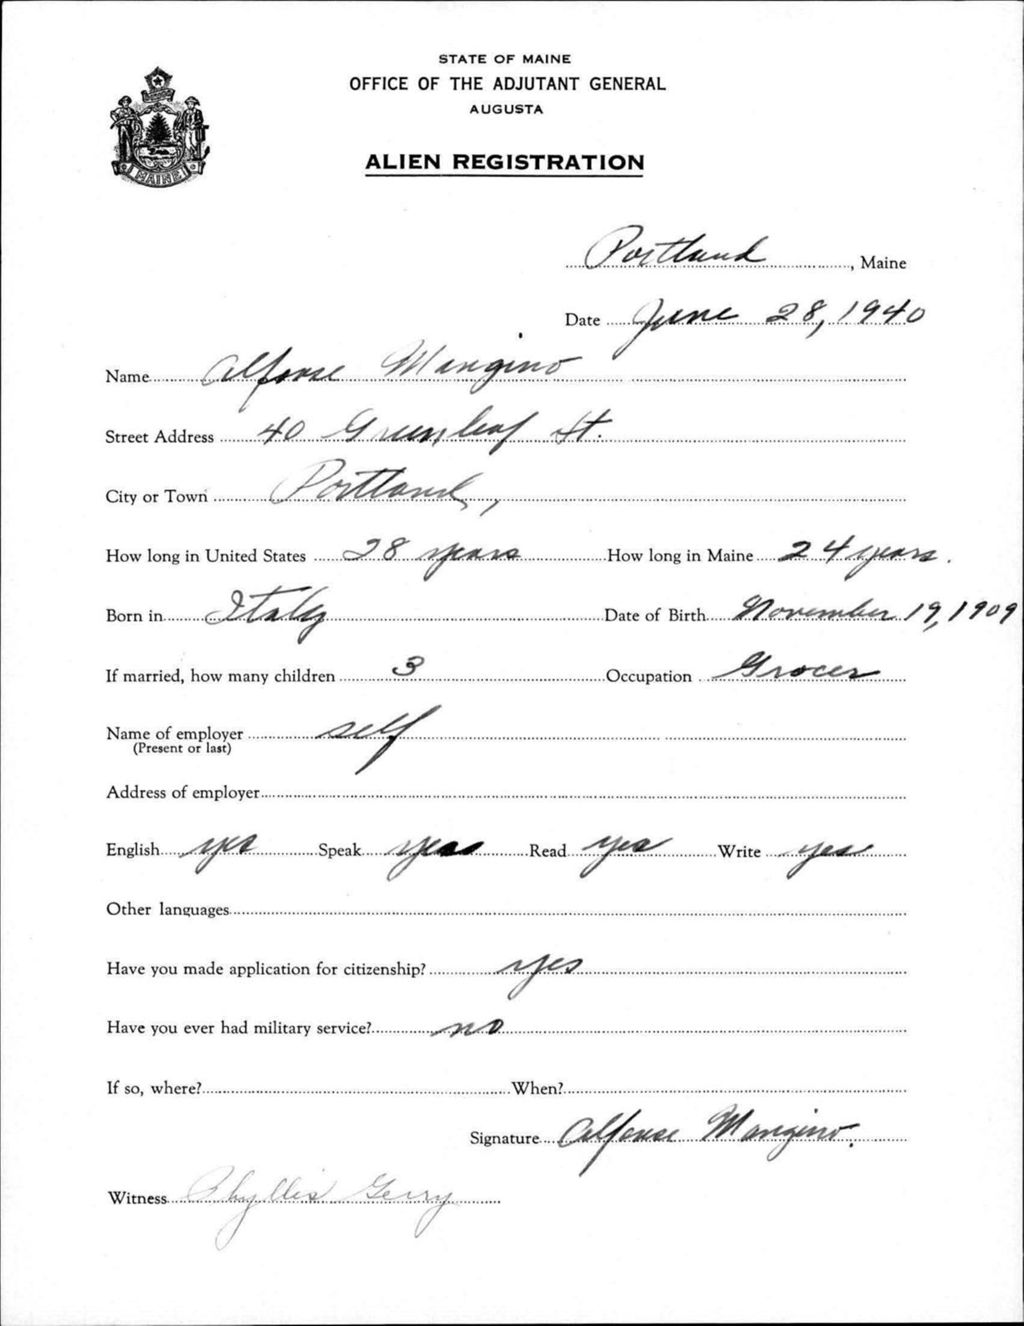 STATE OF MAINE
OFFICE OF THE ADJUTANT GENERAL
AUGUSTA
ALIEN REGISTRATION
MAINE
Portland, Maine
Date June 28, 1940
Name Alfonse Mangino
Street Address 40 Greenleaf St.
City or Town Portland,
How long in United States 28 years How long in Maine 24 years.
Born in Italy Date of Birth November 19, 1909
If married, how many children 3 Occupation Grocer
Name of employer self
(Present or last)
Address of employer
English yes Speak yes Read yes Write yes
Other languages
Have you made application for citizenship? yes
Have you ever had military service? no
If so, where? When?
Signature Alfonse Mangino.
Witness Phyllis Gerry